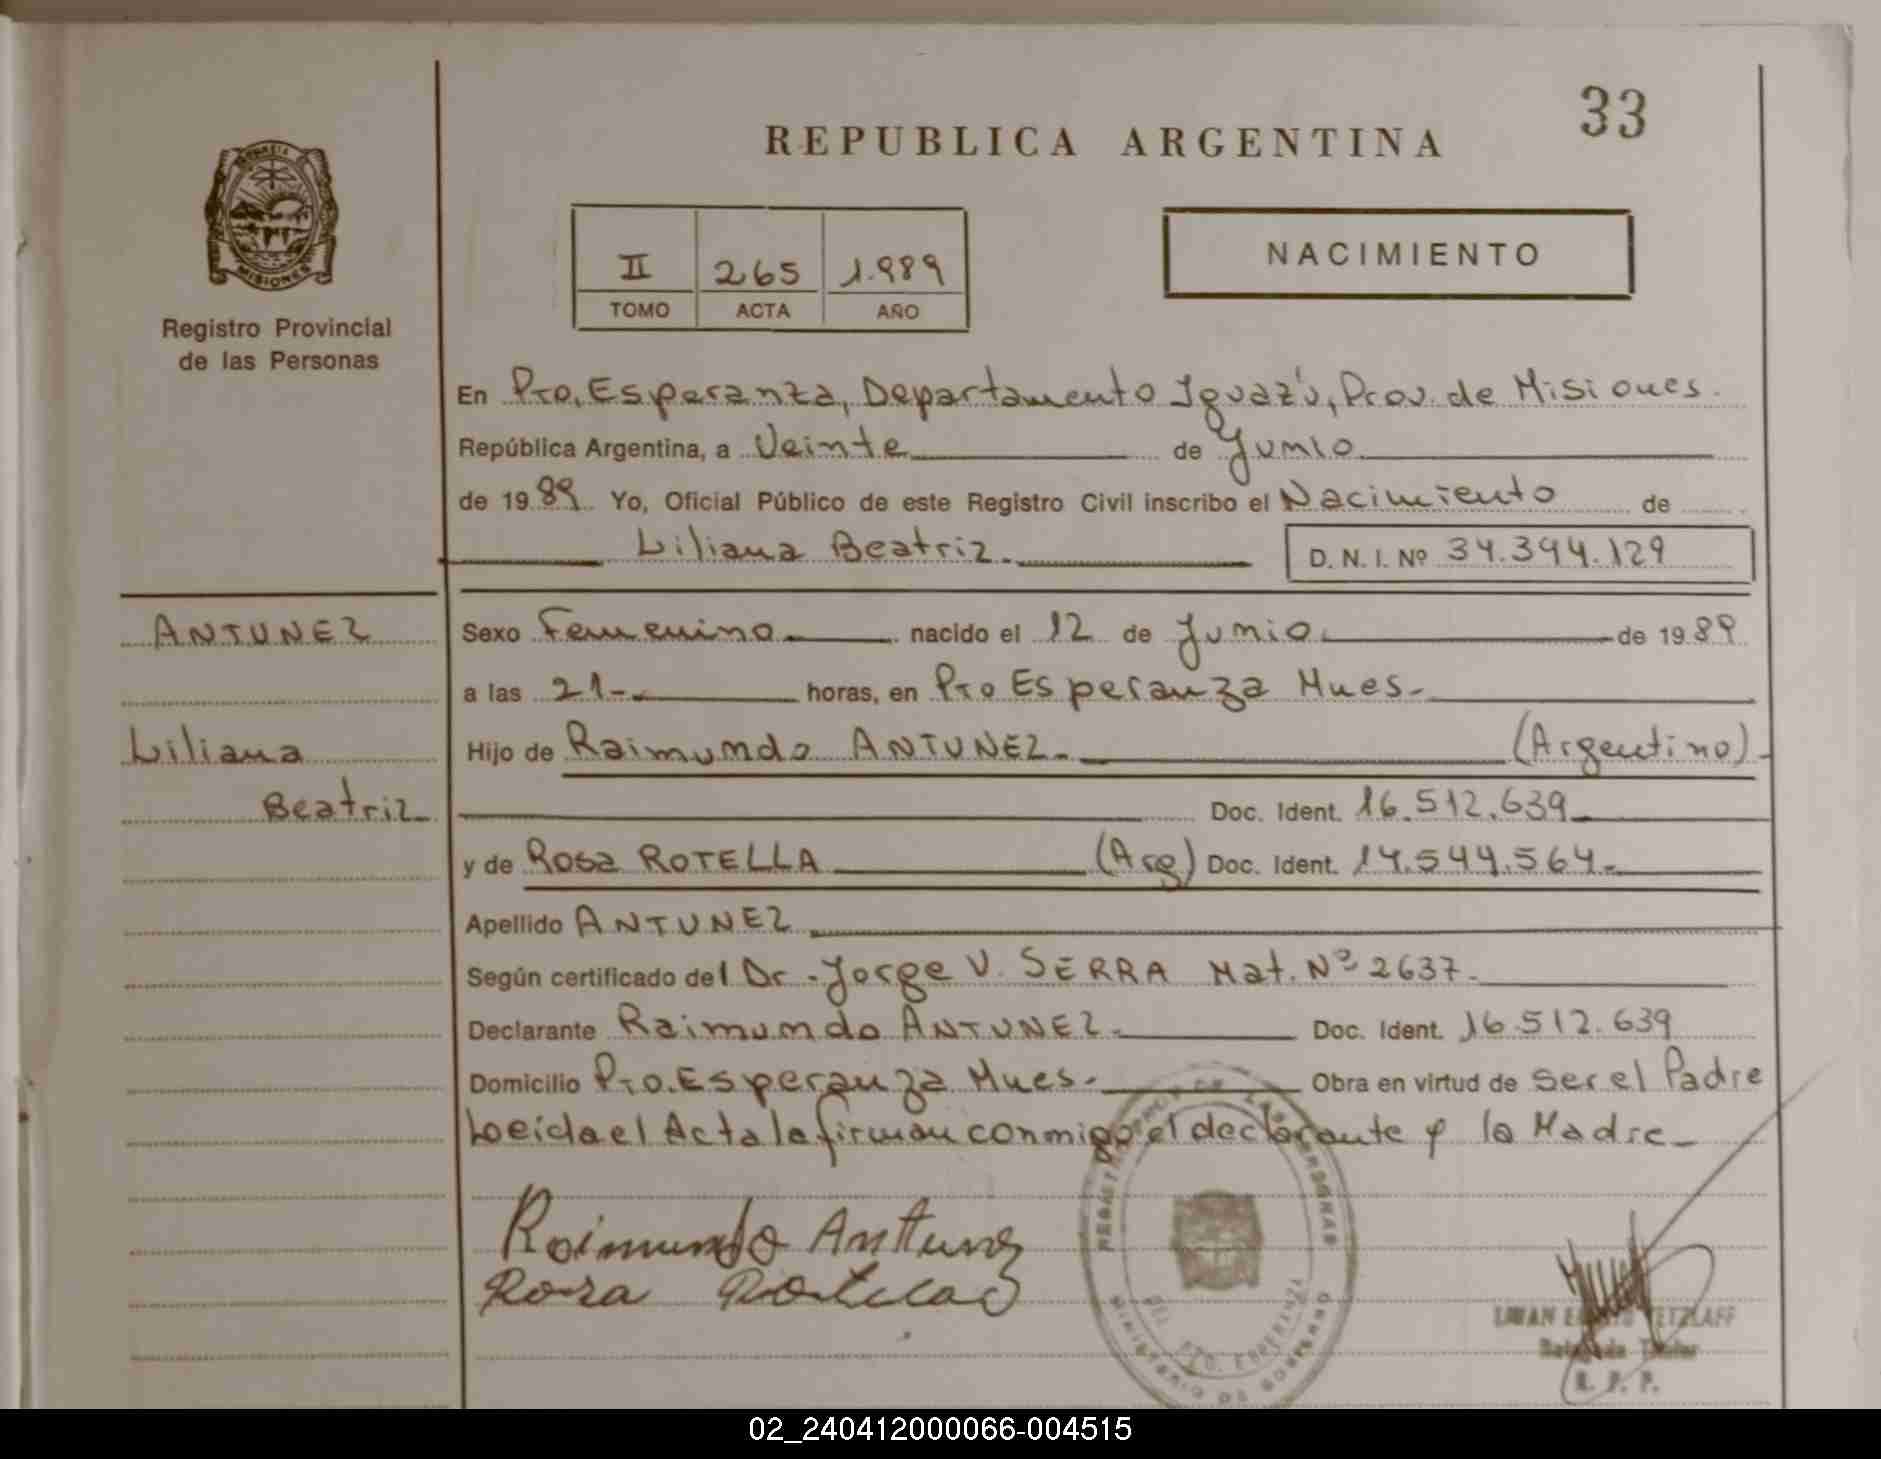 33
REPUBLICA ARGENTINA
MISIONES
Registro Provincial
de las Personas
II 265 1.989
TOMO ACTA AÑO
NACIMIENTO
En Pto. Esperanza, Departamento Iguazú, Prov. de Misiones.
República Argentina, a Veinte de Junio
de 1989 Yo, Oficial Público de este Registro Civil inscribo el Nacimiento de
Liliana Beatriz. D. N. I. Nº 34.394.129
ANTUNEZ
Liliana
Beatriz
Sexo Femenino nacido el 12 de Junio de 1989
a las 21- horas, en Pto Esperanza Mnes-
Hijo de Raimundo ANTUNEZ- (Argentino)-
Doc. Ident. 16.512.639
y de Rosa ROTELLA (Arg) Doc. Ident. 14.544.564-
Apellido ANTUNEZ
Según certificado del Dr. Jorge V. SERRA Mat. Nº 2637-
Declarante Raimundo ANTUNEZ- Doc. Ident. 16.512.639
Domicilio Pto. Esperanza Mnes- Obra en virtud de ser el Padre
Leida el Acta la firman conmigo el declarante y la Madre-
Raimundo Anttunez
Rosa
REGISTRO DE LAS PERSONAS
PTO. ESPERANZA
MINISTERIO DE GOBIERNO
TETZLAFF
Titular
R. P. P.
02_240412000066-004515